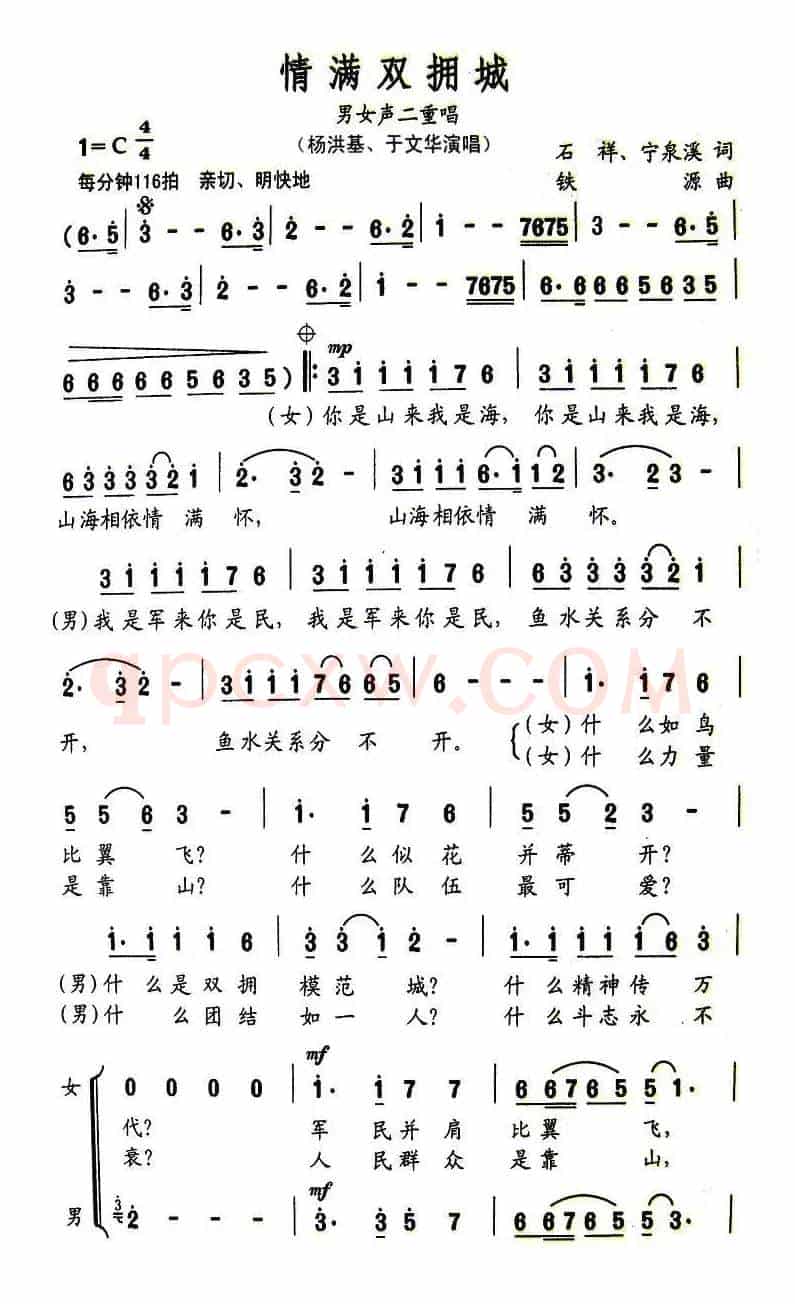 情满双拥城
男女声二重唱
1=C 4/4 （杨洪基、于文华演唱） 石 祥、宁泉溪 词
每分钟116拍 亲切、明快地 铁 源 曲
(6·5 | 3 - - 6·3 | 2 - - 6·2 | 1 - - 7675 | 3 - - 6·5 |
3 - - 6·3 | 2 - - 6·2 | 1 - - 7675 | 6·6 6 6 5 6 3 5 |
6 6 6 6 6 5 6 3 5 ) mp 3 1 1 1 1 7 6 | 3 1 1 1 1 7 6 |
(女)你是山来我是海，你是山来我是海，
6 3 3 3 3 2 1 | 2· 3 2 - | 3 1 1 1 6·1 1 2 | 3· 2 3 - |
山海相依情 满 怀， 山海相依情 满 怀。
3 1 1 1 1 7 6 | 3 1 1 1 1 7 6 | 6 3 3 3 3 2 1 |
(男)我是军来你是民，我是军来你是民，鱼水关系分 不
2· 3 2 - | 3 1 1 1 7 6 6 5 | 6 - - - | 1· 1 7 6 |
开， 鱼水关系分 不 开。 (女)什 么如鸟
(女)什 么力量
qpcxw.com
5 5 6 3 - | 1· 1 7 6 | 5 5 2 3 - |
比翼 飞？ 什 么似花 并蒂 开？
是靠 山？ 什 么队伍 最可 爱？
1· 1 1 1 6 | 3 3 1 2 - | 1· 1 1 1 1 6 3 |
(男)什 么是双拥 模范 城？ 什么精神传 万
(男)什 么团结 如一 人？ 什么斗志永 不
mf
女 0 0 0 0 | 1· 1 7 7 | 6 6 7 6 5 5 1· |
代？ 军 民并肩 比翼 飞，
衰？ 人 民群众 是靠 山，
mf
男 3 2 - - - | 3· 3 5 7 | 6 6 7 6 5 5 3· |